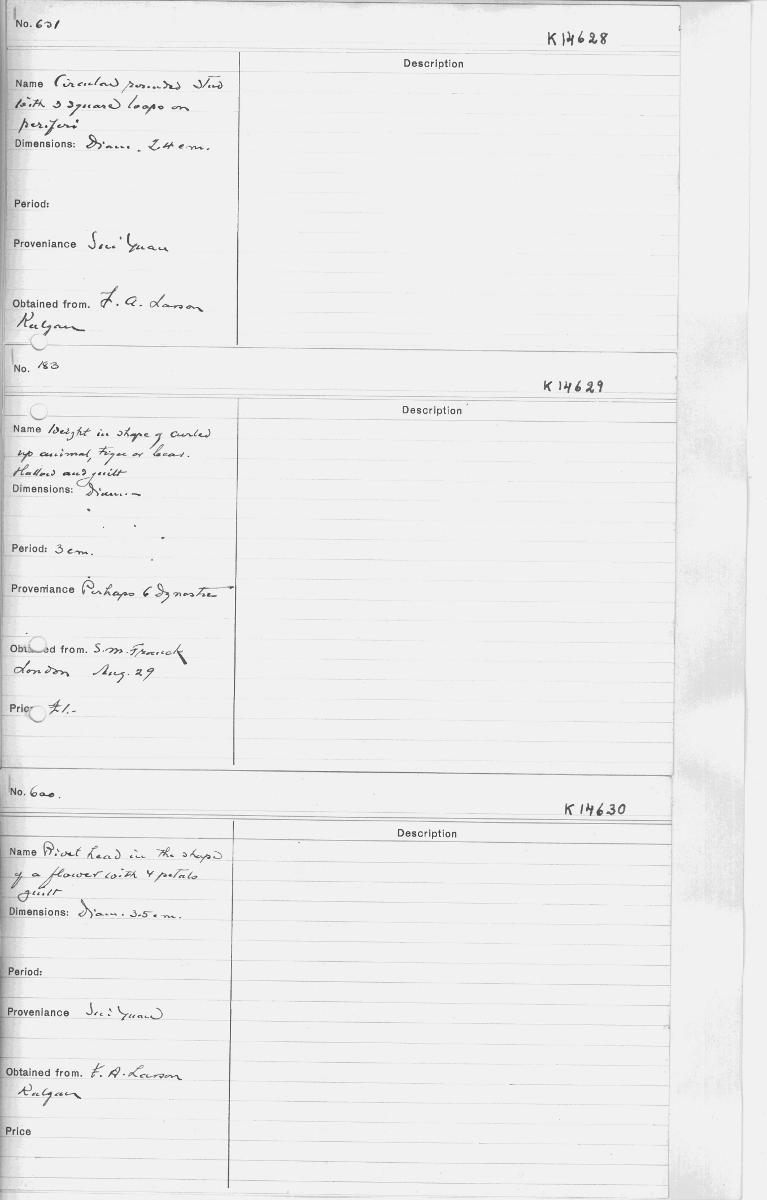 No. 631
K 14628
Description
Name Circular rounded stud
with 3 square loops on
periferi
Dimensions: Diam. 2.4 cm.
Period:
Proveniance Sui Yuan
Obtained from. F. A. Larson
Kalgan
No. 183
K 14629
Description
Name Weight in shape of curled
up animal, tiger or bear.
Hallow and guilt
Dimensions: Diam. –
Period: 3 cm.
Proveniance Perhaps 6 dynastie
Obtained from. S. M. Franck
London Aug. 29
Price £1.-
No. 600.
K 14630
Description
Name Rivet head in the shape
of a flower with 4 petals
guilt
Dimensions: Diam. 3.5 cm.
Period:
Proveniance Sui Yuan
Obtained from. F. A. Larson
Kalgan
Price